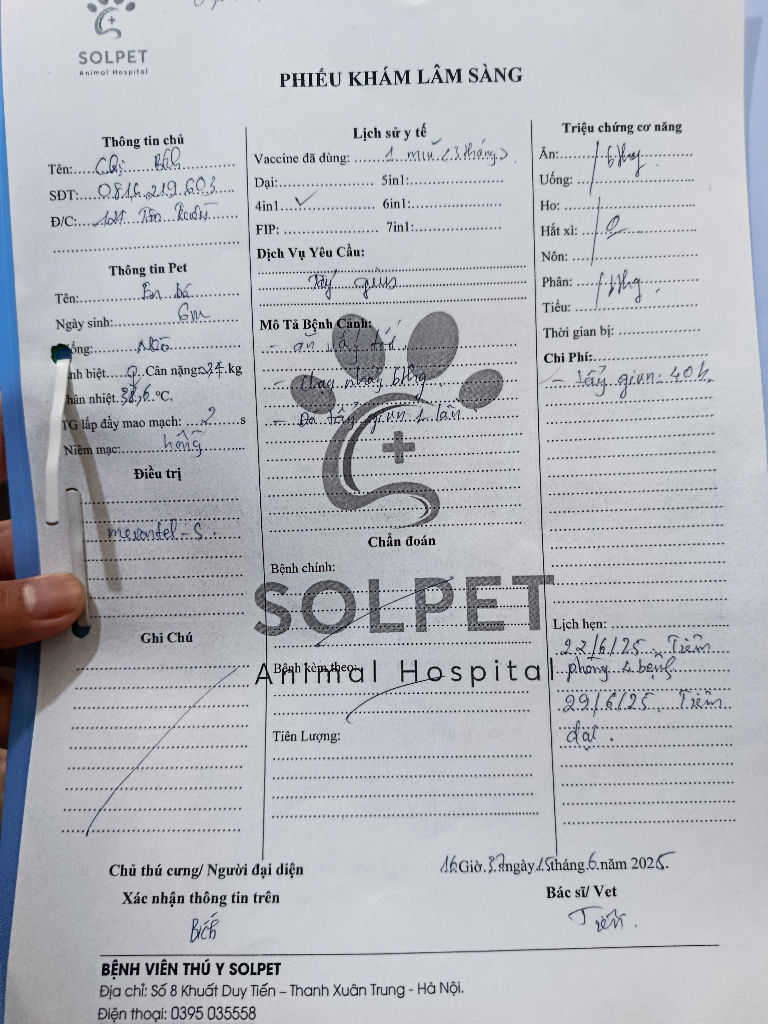 SOLPET
Animal Hospital
PHIẾU KHÁM LÂM SÀNG
Thông tin chủ
Tên: Chị Bích
SĐT: 0816.219.603
Đ/C: Tân
Thông tin Pet
Tên:
Ngày sinh: 6m
ống: Mèo
nh biệt ♀ Cân nặng 2,7 kg
hân nhiệt 38,6 °C.
TG lấp đầy mao mạch: 2 s
Niêm mạc: hồng
Điều trị
mexantel - S
Ghi Chú
Lịch sử y tế
Vaccine đã dùng: 1 mũi (3 tháng)
Dại: 5in1:
4in1 ✓ 6in1:
FIP: 7in1:
Dịch Vụ Yêu Cầu:
Tẩy giun
Mô Tả Bệnh Cảnh:
- ăn uống tốt
- Chạy nhảy bthg
- Đã tẩy giun 1 lần
Chẩn đoán
Bệnh chính:
SOLPET
Animal Hospital
Bệnh kèm theo:
Tiên Lượng:
Triệu chứng cơ năng
Ăn: bthg
Uống:
Ho:
Hắt xì:
Nôn:
Phân: bthg
Tiểu:
Thời gian bị:
Chi Phí:
- tẩy giun: 40k
Lịch hẹn:
22/6/25 Tiêm
phòng 4 bệnh
29/6/25 Tiêm
dại.
Chủ thú cưng/ Người đại diện
Xác nhận thông tin trên
Bích
16 Giờ 37 ngày 15 tháng 6 năm 2025
Bác sĩ/ Vet
BỆNH VIỆN THÚ Y SOLPET
Địa chỉ: Số 8 Khuất Duy Tiến – Thanh Xuân Trung - Hà Nội.
Điện thoại: 0395 035558